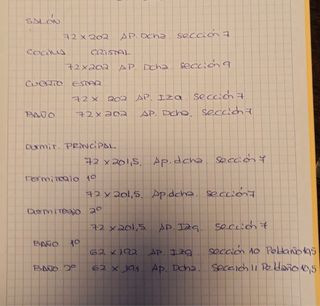 SALÓN
72 x 202 AP. Dcha. Sección 7
COCINA CRISTAL
72 x 202 AP. Dcha Sección 9
CUARTO ESTAR
72 x 202 AP. Izq Sección 7
BAÑO 72 x 202 AP. Dcha. Sección 7
Dormit. PRINCIPAL
72 x 201,5. Ap. dcha. Sección 7
Dormitorio 1º
72 x 201,5. Ap. dcha. Sección 7
Dormitorio 2º
72 x 201,5 AP. Izq Sección 7
BAÑO 1º 62 x 192 AP. Izq Sección 10 Peldaño 10,5
BAÑO 2º 62 x 191 AP. Dcha. Sección 11 Peldaño 10,5